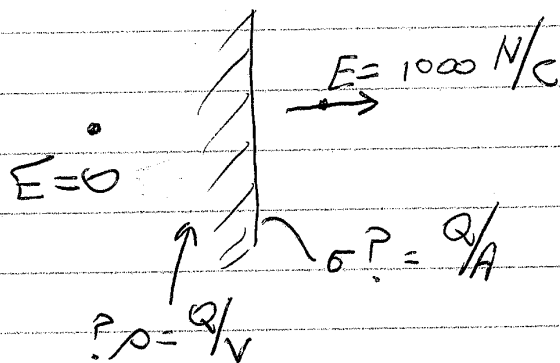 E = 1000 N/C
E = 0
σ ? = Q/A
? ρ = Q/V